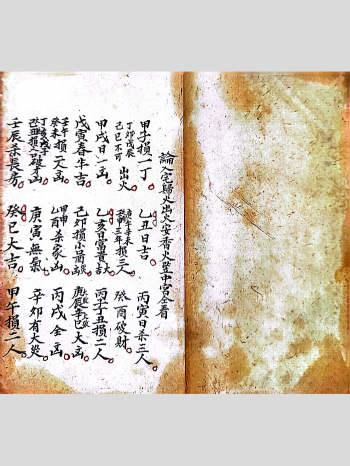 論入宅歸火出火安香火登中宮全看
甲子損一丁 乙丑日吉 丙寅日杀三人
丁卯戊辰己巳不可出火 庚午辛未三年損三人 癸酉破財
甲戌日一凶 乙亥日富貴 丙子丁丑損二人
戊寅春牛吉 己卯損小 庚辰辛巳大凶
壬午癸未損一人凶 甲申乙酉杀家 丙戌金凶
丁亥戊子損人 庚寅無氣 辛卯有大災
壬辰杀長房 癸巳大吉 甲午損二人